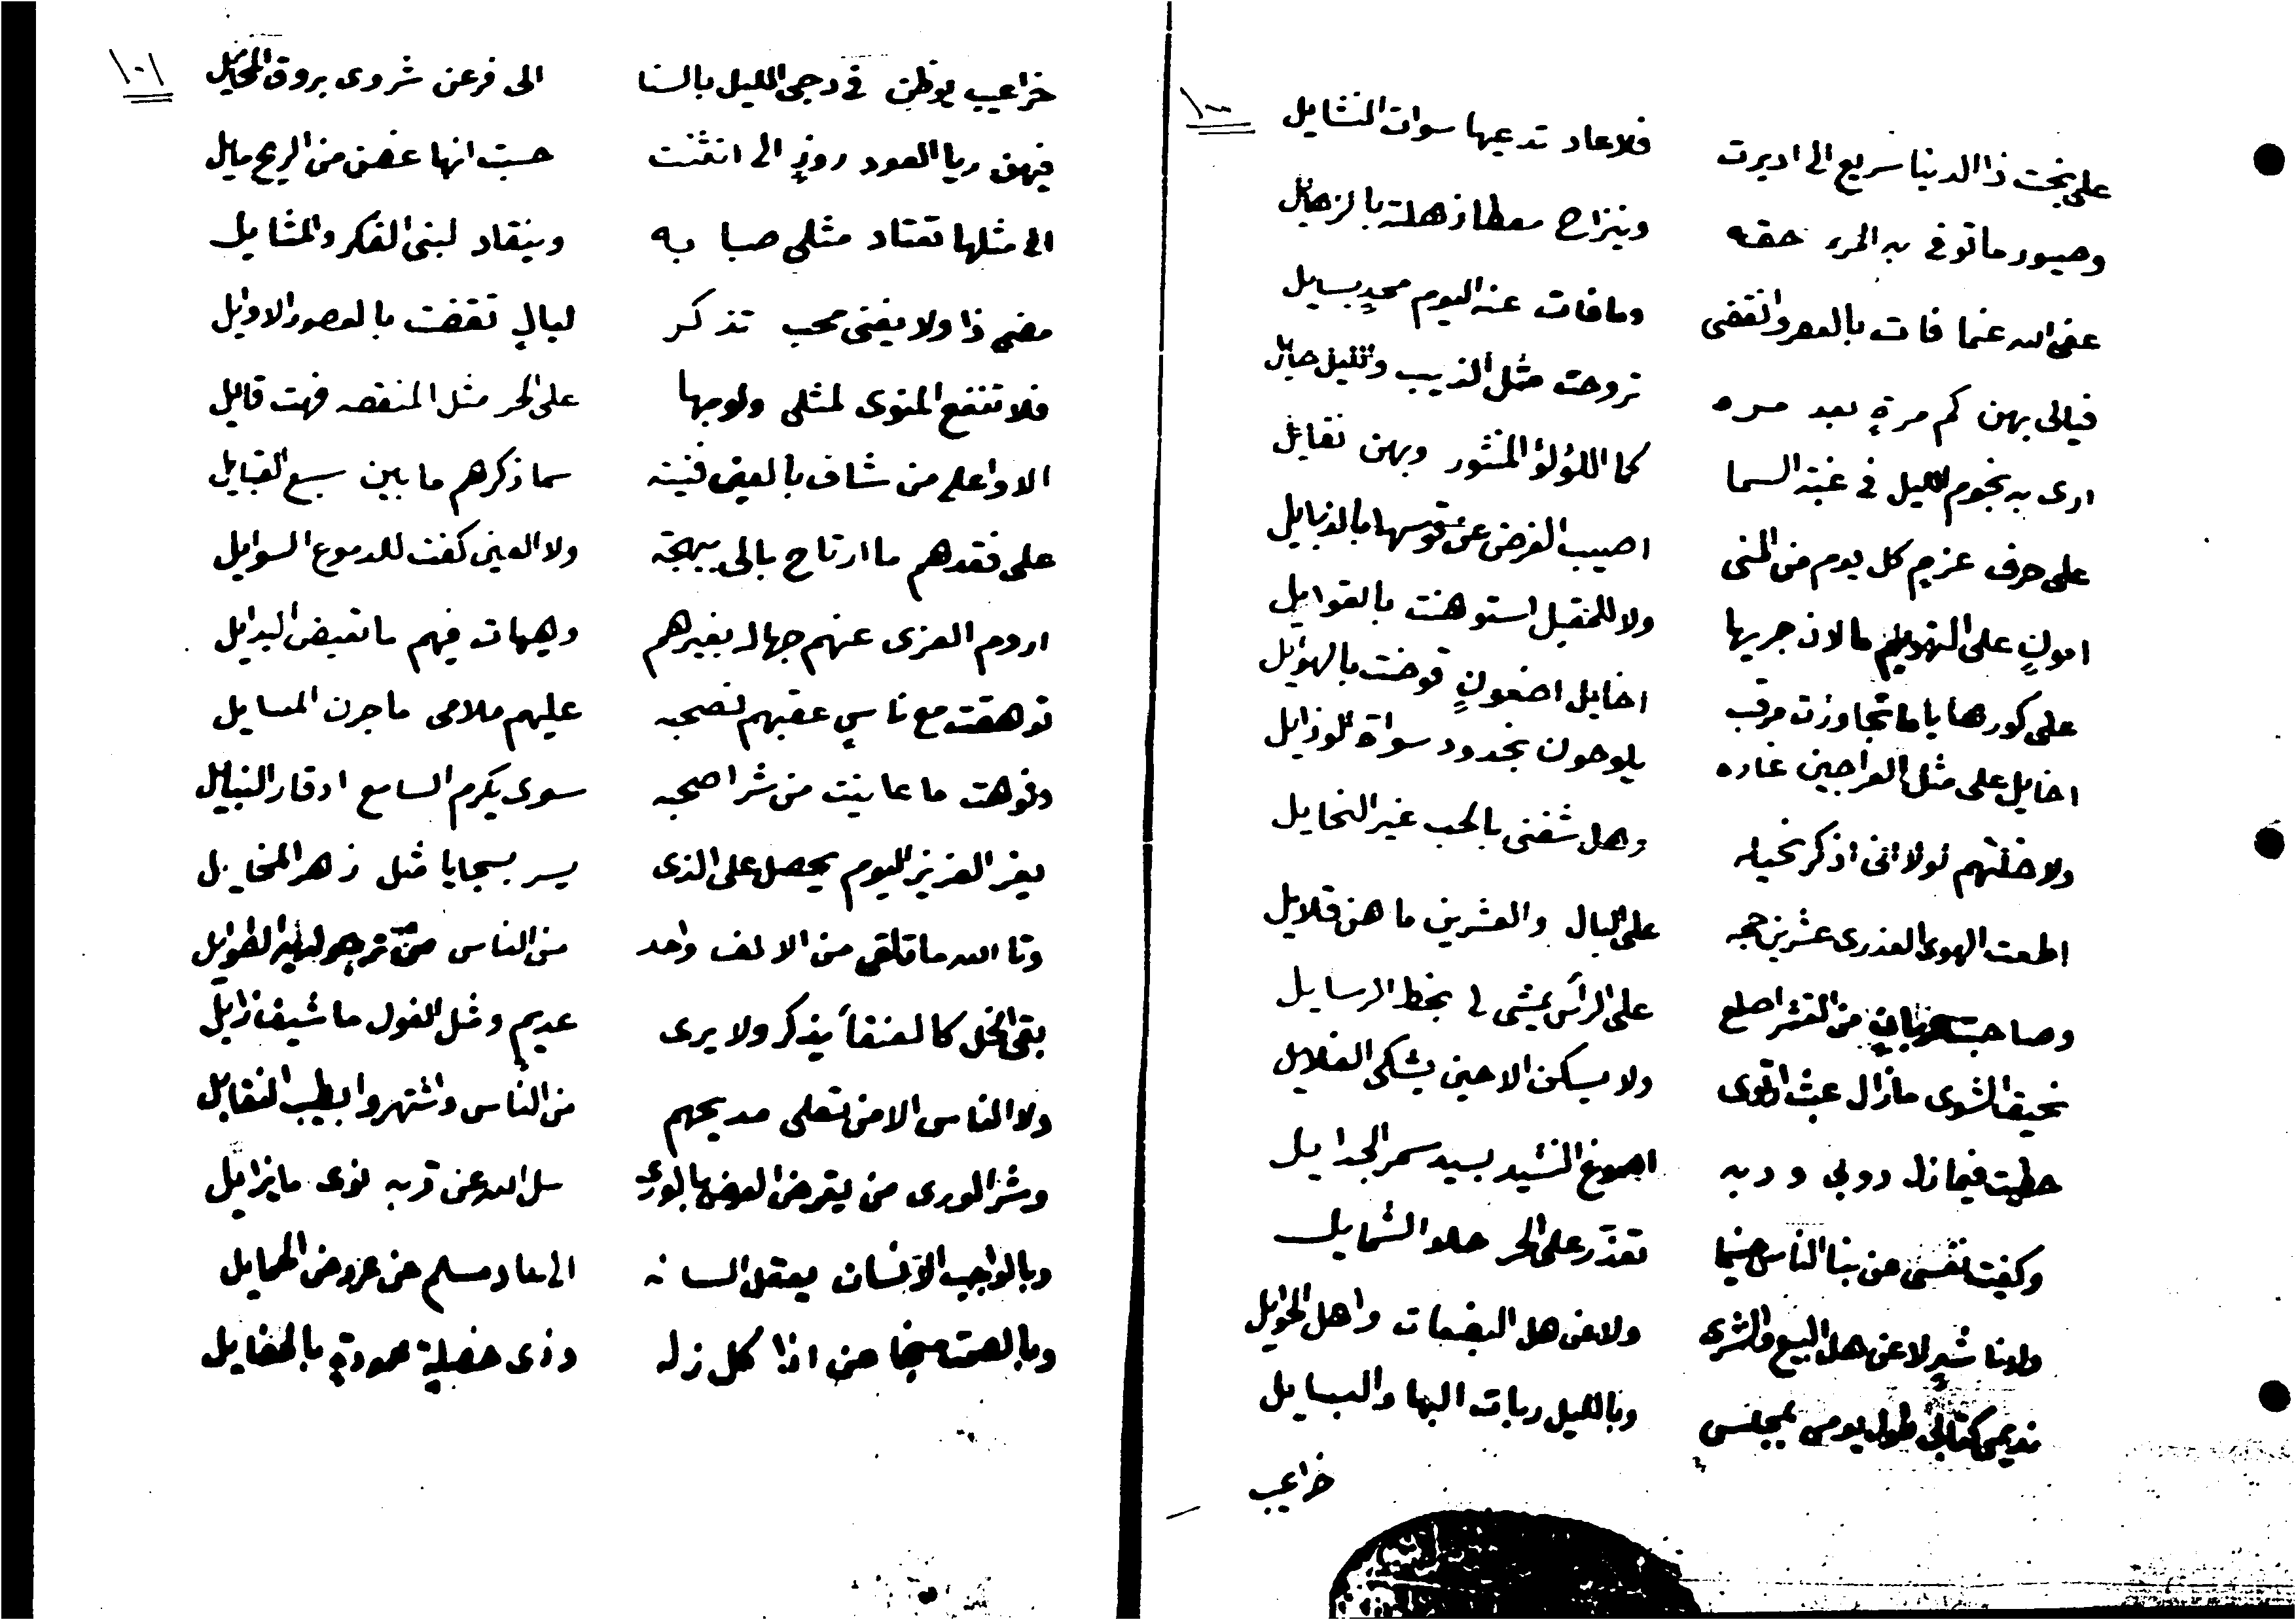 ١٠٠
على بخت ذا الدنيا سريع الى ادبرت فلا عاد تدعيها سوات النشايل
وصيور ما توفي به المرء حقه وينزاح معطا ذهلته بالزهايل
عفى الله عنما فات بالعصر وانقضى وما فات عنه اليوم محدٍ بسايل
فيالى بهن كم مرةٍ بعد مره تروحت مثل الذيب والليل حايل
ارى به نجوم الليل في غبة السما كما اللؤلؤ المنثور وبهن نقايل
على حرف عزمٍ كل يوم من المنى اصيب الغرض عن قوسها بالذبايل
امونٍ على التهويم ما لان جريها ولا للمقبل استوهنت بالقوايل
على كورها ياما تجاوزت مرقب اخايل اضعونٍ قوضت بالهوايل
اخايل على مثل العراجين غاده يلوحون بخدود سواة الوذايل
ولا خلتهم لولا انى اذكر نحيله وهل شفنى بالحب غير النحايل
اطعت الهوى العذرى عشرين حجه على البال والعشرين ما هن قلايل
وصاحبت من القشر اصلع على الرأس يمشى لى بخط الرسايل
نحيف الشوى مازال عبث القوى ولا يسكن الا حين يشكى الغلايل
حظيت فيما زل دوبى ودبه اصوغ النشيد بسيد سمر الجدايل
وكفيت نفسى عن بنا الناس حيثما تعذر على الحر حلو الشمايل
ولانا شيرٍ لا عن هل البيع والشرى ولا عن هل البضعات واهل الحوايل
نديمى كتابى طول يومى بمجلسى وبالليل ربات البها والبسايل
خراعيب
١٠١
خراعيب يوظن في دجى الليل بالسنا الى فرعن شروى بروق المخايل
فيهن ريا العود رودٍ الى انثنت حسبت انها غصن من الريح مايل
الى مثلها تعتاد مثلى صبابه وينقاد لبنى الفكر والمثايل
مضى ذا ولا يغنى محب تذكر ليالٍ تقضت بالعصور الاوايل
فلا تنفع المنوى لمثلى ولوجها على الحر مثل المنقصه فهت قايل
الا واعلى من شاف بالعين فنيته سما ذكرهم ما بين سبع القبايل
على فقدهم ما ارتاح بالى ببهجة ولا العين كفت للدموع السوايل
اروم العزى عنهم جهال بغيرهم وهيهات فيهم ما تعيض البدايل
توهقت مع ناسٍ عقبهم لصحبه عليهم ملامى ما جرن المسايل
ونوهت ما عاينت من شر اصحبه سوى يكرم السامع اوقار النبايل
يعز العزيز اليوم يحصل على الذى يسر بسجايا مثل زهر المخايل
وتا الله ما تلقى من الالف واحد من الناس من ترجو لليل الطوايل
بقى الخل كالعنقأ يذكر ولا يرى عديمٍ ومثل الغول ما شيف زايل
ولا الناس الا من تعلى مديحهم من الناس واشتهروا بطيب النقايل
وشر الورى من يقرض العرض بالورى سل الله عن قربه نوى ما يزايل
وبالواجب الانسان يعقل لسانه الى عاد مسلم عن عروض الحمايل
وبالصمت منجا عن اذا كل زله وذى خصلة محمودةٍ بالخصايل